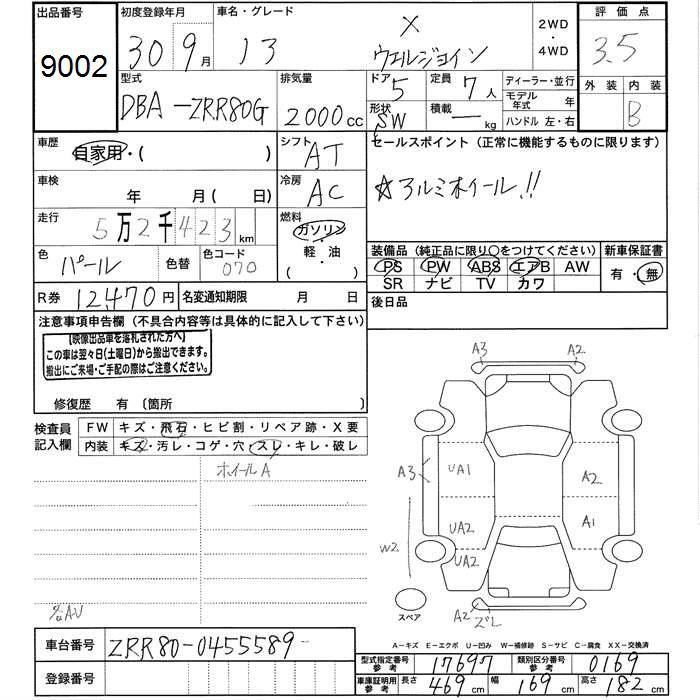 出品番号 9002
初度登録年月 30 9月
車名・グレード 13 X ウェルジョイン
2WD ・ 4WD
評価点 3.5
外装 内装 B
型式 DBA-ZRR80G
排気量 2000cc
ドア 5
形状 SW
定員 7人
積載 ー kg
ディーラー・並行
モデル年式 年
ハンドル 左・右
車歴 自家用・( )
シフト AT
車検 年 月( 日)
冷房 AC
走行 5万2千423km
燃料 ガソリン 軽・油 ( )
色 パール 色替
色コード 070
R券 12,470円
名変通知期限 月 日
セールスポイント(正常に機能するものに限ります)
☆アルミホイール!!
装備品(純正品に限り〇をつけてください)
PS PW ABS エアB AW
SR ナビ TV カワ
新車保証書
有・無
後日品
注意事項申告欄(不具合内容等は具体的に記入して下さい)
【映像出品車を落札された方へ】
この車は翌々日(土曜日)から搬出できます。
搬出にご来場・ご手配の際はご注意ください。
修復歴 有(箇所
検査員記入欄
FW キズ・飛石・ヒビ割・リペア跡・X要
内装 キズ・汚レ・コゲ・穴・スレ・キレ・破レ
ホイールA
A3 A2
A3 UA1 A2
UA2 A1
W2 UA2
スペア
A2 ズレ
A-キズ E-エクボ U-凹み W-補修跡 S-サビ C-腐食 XX-交換済
車台番号 ZRR80-0455589-
登録番号
型式指定番号参考 17697
類別区分番号参考 0169
車庫証明用参考 長さ 469cm 幅 169cm 高さ 182cm